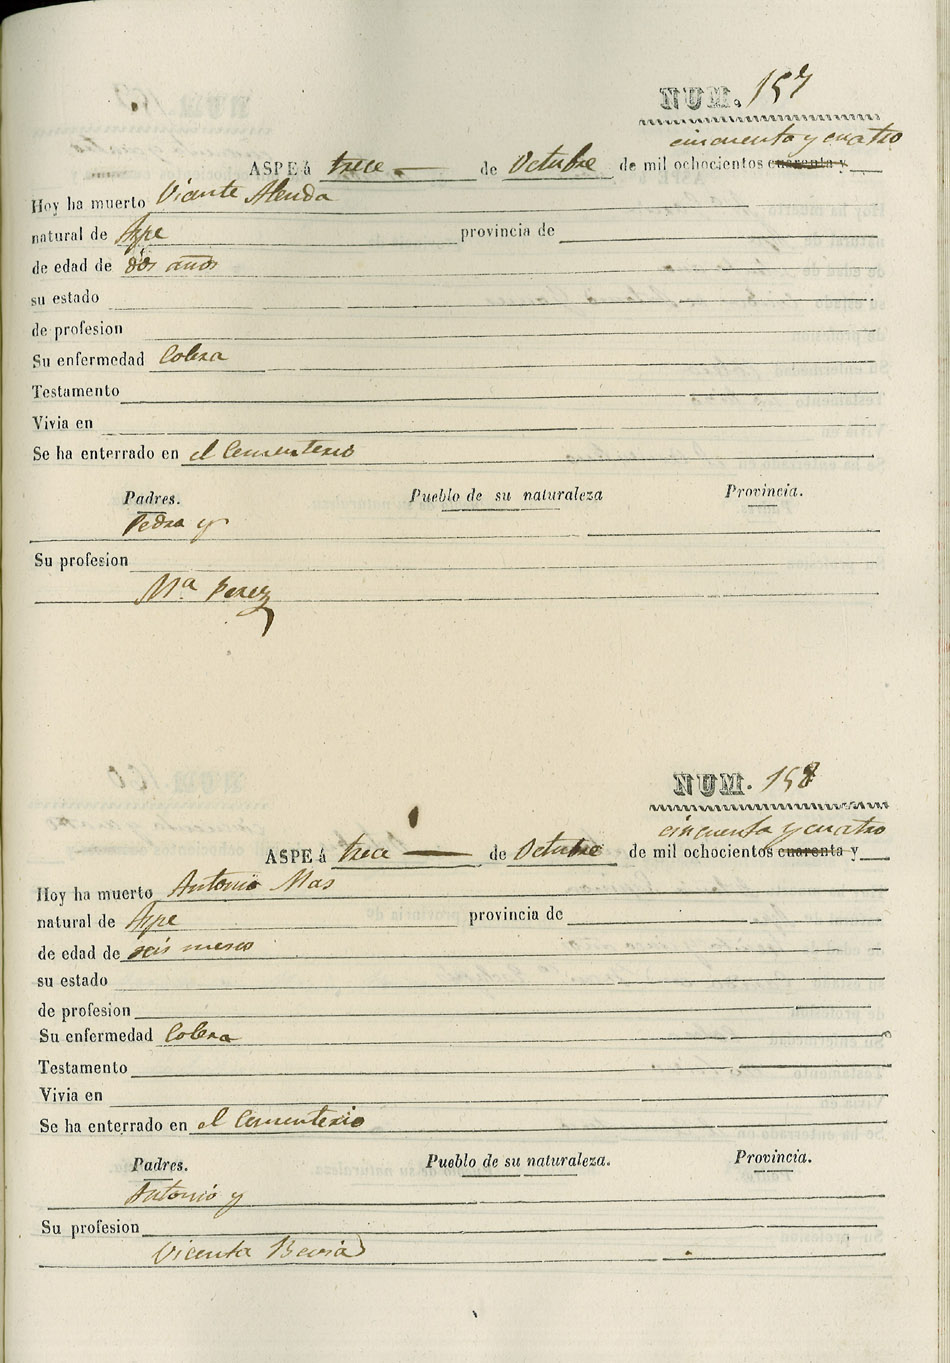 NUM. 157
cincuenta y cuatro
ASPE á trece de Octubre de mil ochocientos cuarenta y
Hoy ha muerto Vicente Alenda
natural de Aspe provincia de
de edad de dos años
su estado
de profesion
Su enfermedad Colera
Testamento
Vivia en
Se ha enterrado en el Cementerio
Padres. Pueblo de su naturaleza Provincia.
Pedro y
Su profesion
Mª Perez
NUM. 158
cincuenta y cuatro
ASPE á trece de Octubre de mil ochocientos cuarenta y
Hoy ha muerto Antonio Mas
natural de Aspe provincia de
de edad de seis meses
su estado
de profesion
Su enfermedad Colera
Testamento
Vivia en
Se ha enterrado en el Cementerio
Padres. Pueblo de su naturaleza. Provincia.
Antonio y
Su profesion
Vicenta